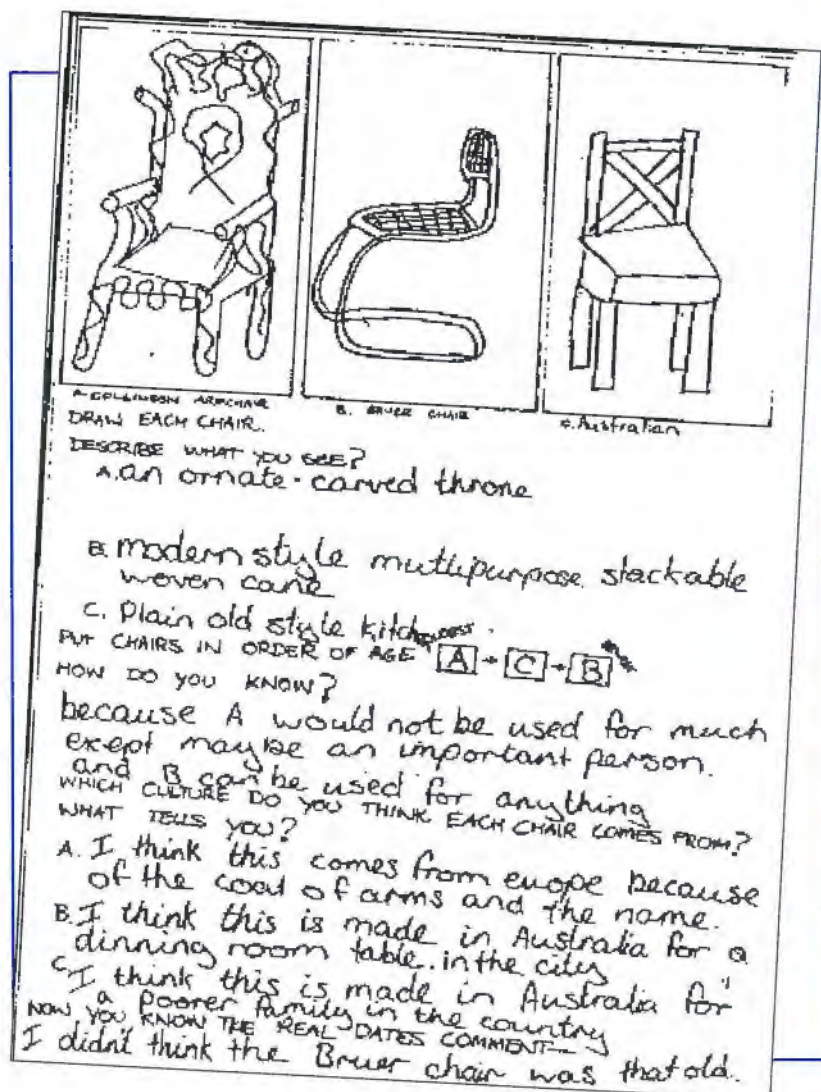 A COLLINSON ARMCHAIR
B. BRUER CHAIR
C. Australian
DRAW EACH CHAIR.
DESCRIBE WHAT YOU SEE?
A. an ornate - carved throne
B. modern style mutlipurpose stackable
woven cane
C. Plain old style kitchen
PUT CHAIRS IN ORDER OF AGE OLDEST A → C → B
HOW DO YOU KNOW?
because A would not be used for much
except maybe an important person.
and B can be used for anything
WHICH CULTURE DO YOU THINK EACH CHAIR COMES FROM?
WHAT TELLS YOU?
A. I think this comes from europe because
of the coat of arms and the name.
B. I think this is made in Australia for a
dinning room table. in the city
C. I think this is made in Australia for
a poorer family in the country
NOW YOU KNOW THE REAL DATES COMMENT—
I didn't think the Bruer chair was that old.